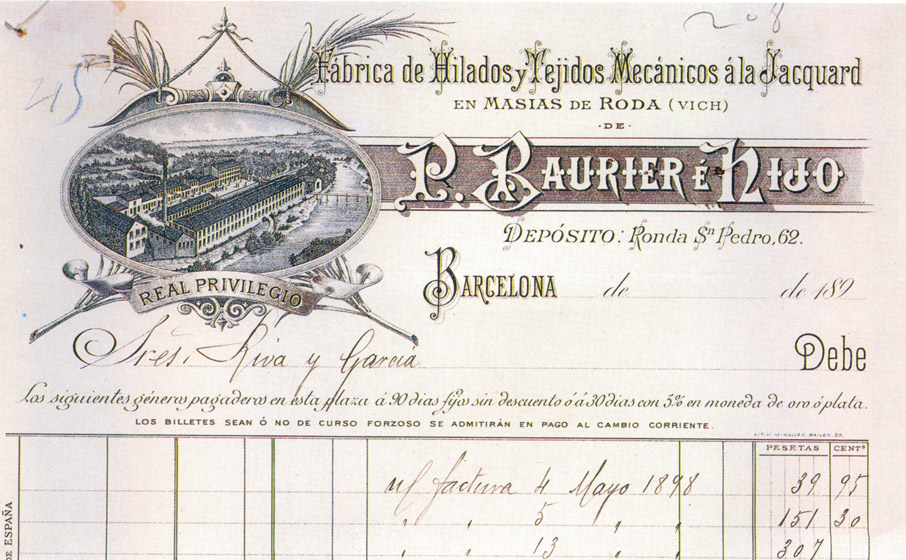 45
208
Fábrica de Hilados y Tejidos Mecánicos á la Jacquard
EN MASIAS DE RODA (VICH)
·DE·
P. BAURIER É HIJO
DEPÓSITO: Ronda Sn Pedro, 62.
REAL PRIVILEGIO
BARCELONA de de 189
Sres. Riva y García Debe
Los siguientes géneros pagaderos en esta plaza á 90 dias fijos sin descuento ó á 30 dias con 5% en moneda de oro ó plata.
LOS BILLETES SEAN Ó NO DE CURSO FORZOSO SE ADMITIRÁN EN PAGO AL CAMBIO CORRIENTE.
PESETAS CENTS
factura 4 Mayo 1898 39 95
" " 5 " " 151 30
" " 13 " " 307
DE ESPAÑA